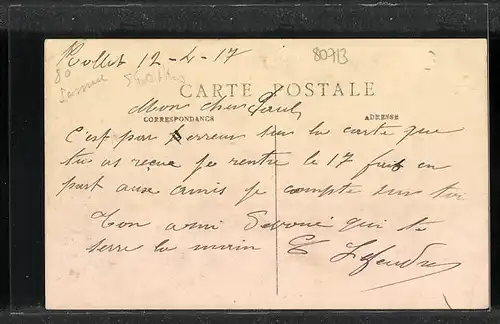 Rollot 12-4-17
80713
80
Somme
CARTE POSTALE
Mon cher Paul,
CORRESPONDANCE ADRESSE
C'est par erreur sur la carte que
tu as reçue je rentre le 17 fais en
part aux amis je compte sur toi
Ton ami dévoué qui te
serre la main